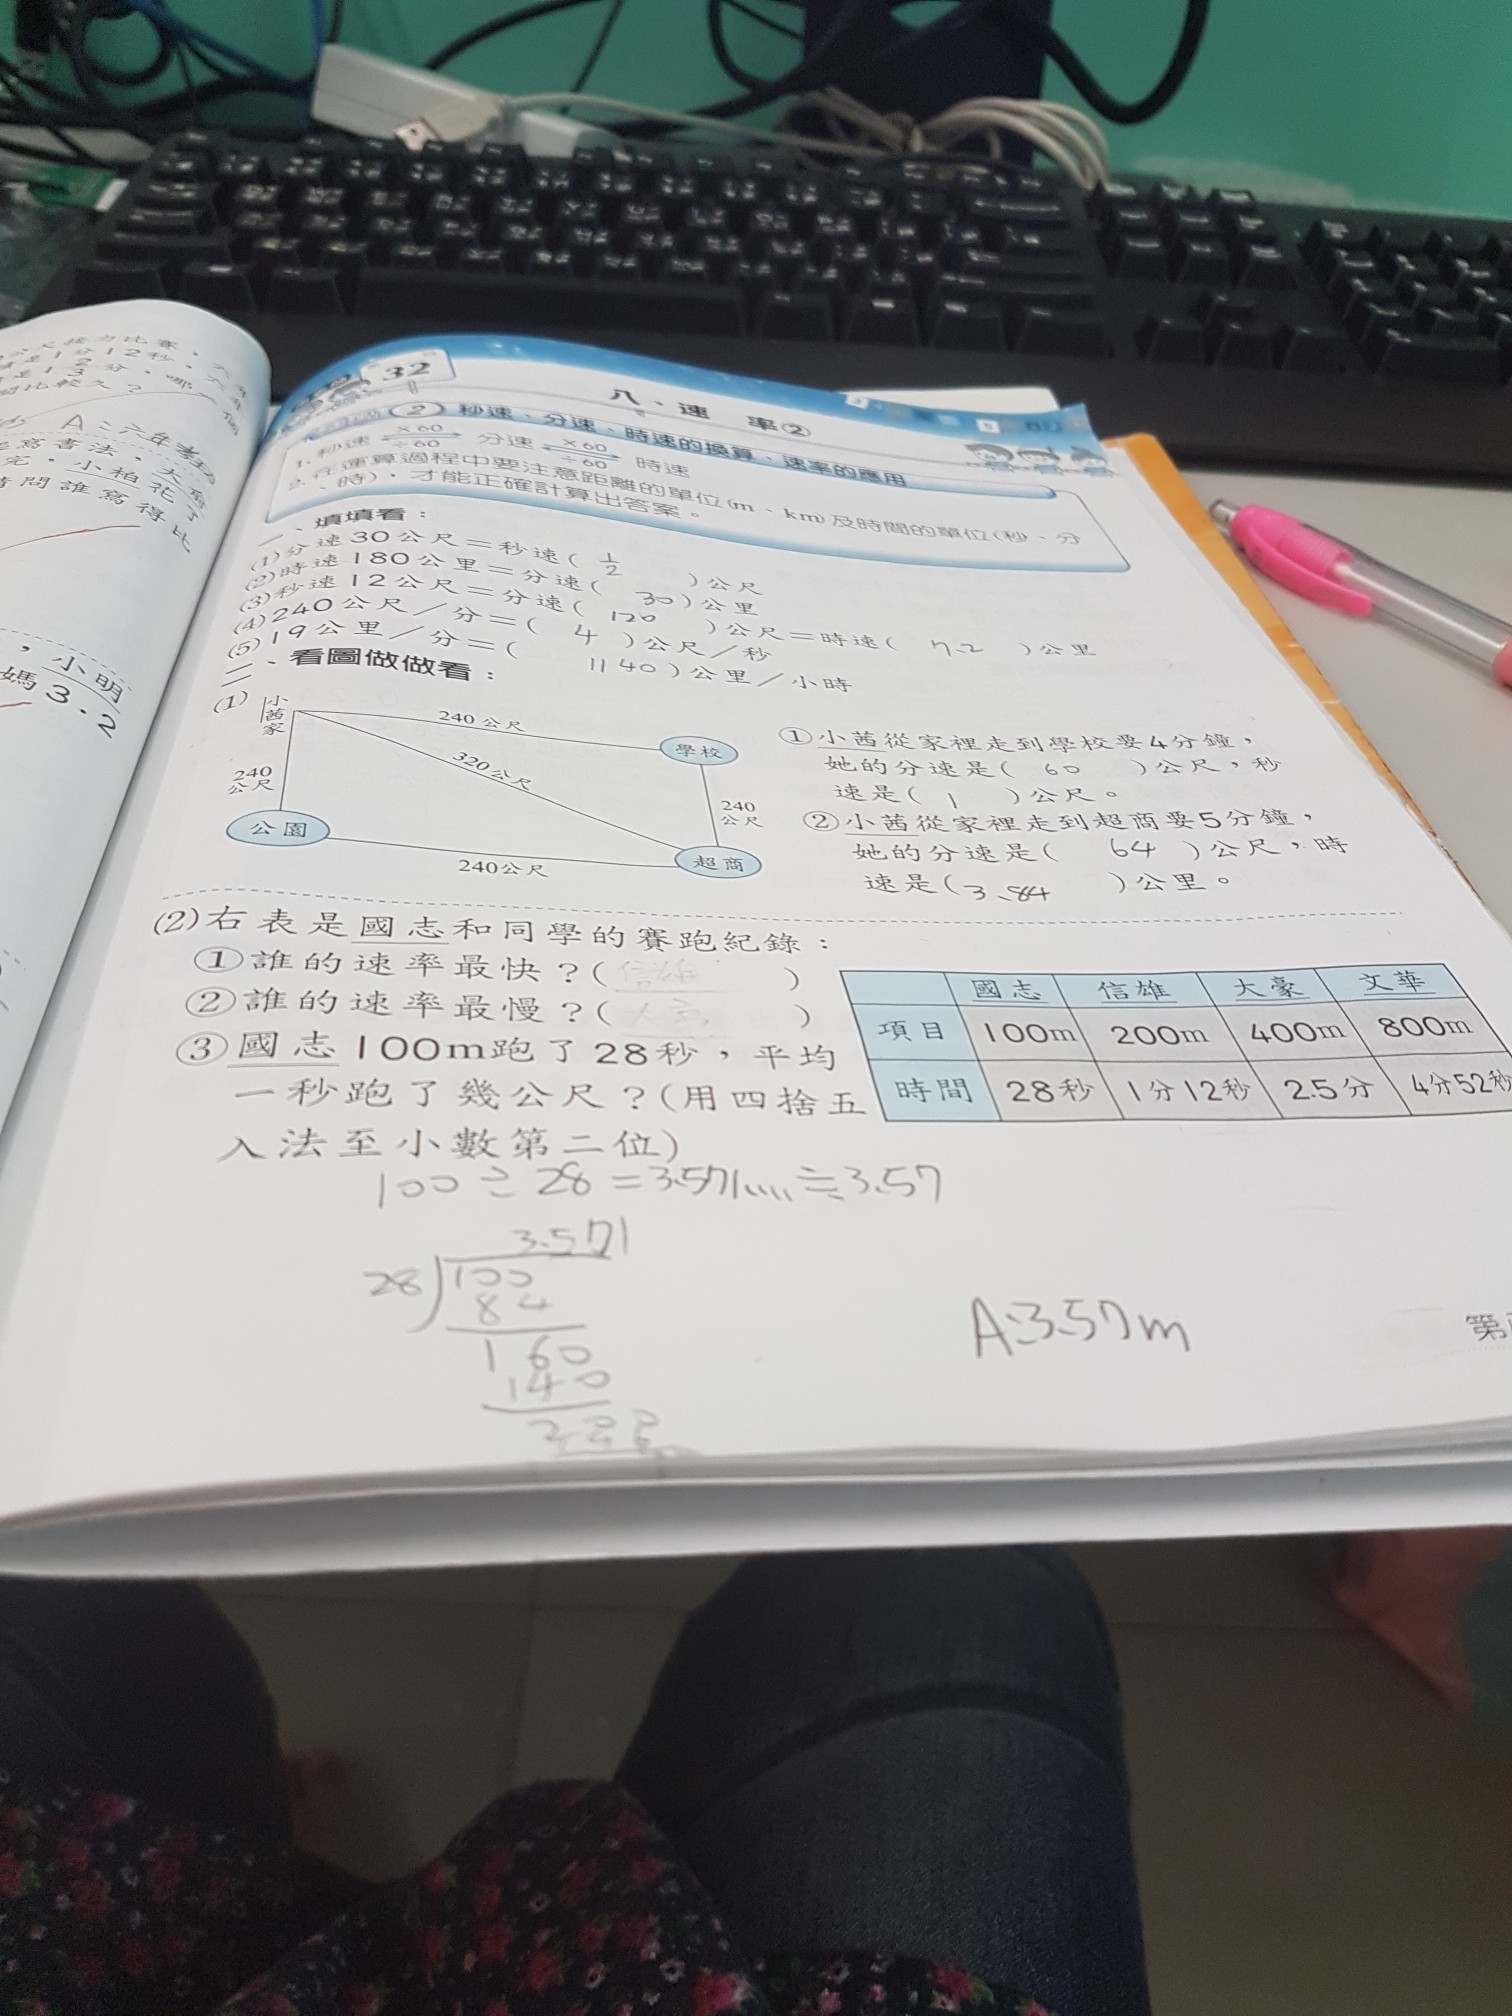 公尺接力比賽，六年
是1分12秒，六年
是1 2/3分，哪一個
間比較久？
A：六年孝班
寫書法，大
完，小柏花了
請問誰寫得比
，小明
媽3.2
32
八、速　率②
② 秒速、分速、時速的換算、速率的應用
1.秒速 ×60 ÷60 分速 ×60 ÷60 時速
2.在運算過程中要注意距離的單位(m、km)及時間的單位(秒、分
、時)，才能正確計算出答案。
一、填填看：
(1)分速30公尺＝秒速( 1/2 )公尺
(2)時速180公里＝分速( 30 )公里
(3)秒速12公尺＝分速( 120 )公尺＝時速( 7.2 )公里
(4)240公尺／分＝( 4 )公尺／秒
(5)19公里／分＝( 1140 )公里／小時
二、看圖做做看：
(1)
小茜家
240公尺
學校
320公尺
240公尺
240公尺
公園
240公尺
超商
①小茜從家裡走到學校要4分鐘，
她的分速是( 60 )公尺，秒
速是( 1 )公尺。
②小茜從家裡走到超商要5分鐘，
她的分速是( 64 )公尺，時
速是( 3.84 )公里。
(2)右表是國志和同學的賽跑紀錄：
①誰的速率最快？( 信雄 )
②誰的速率最慢？( 大豪 )
③國志100m跑了28秒，平均
一秒跑了幾公尺？(用四捨五
入法至小數第二位)
國志 信雄 大豪 文華
項目 100m 200m 400m 800m
時間 28秒 1分12秒 2.5分 4分52秒
100÷28=3.571....≒3.57
3.571
28)100
84
160
140
A:3.57m
第